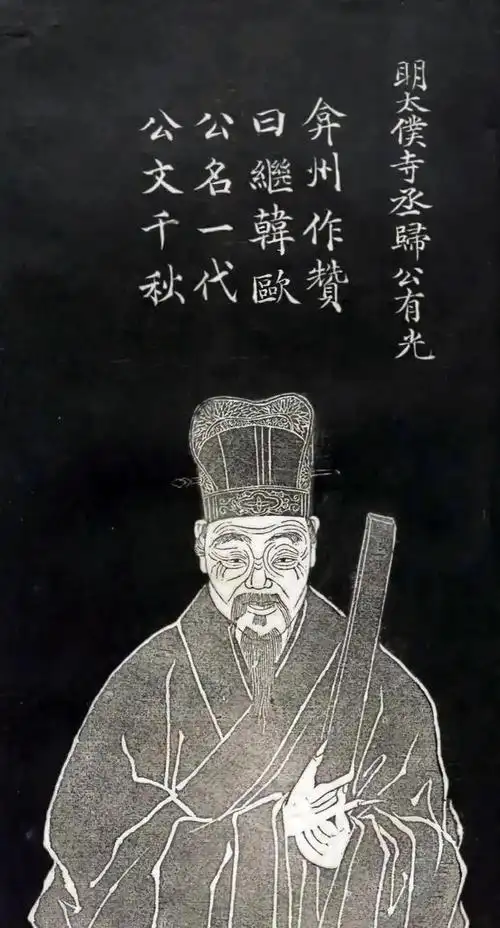 明太僕寺丞歸公有光
弇州作贊
曰繼韓歐
公名一代
公文千秋